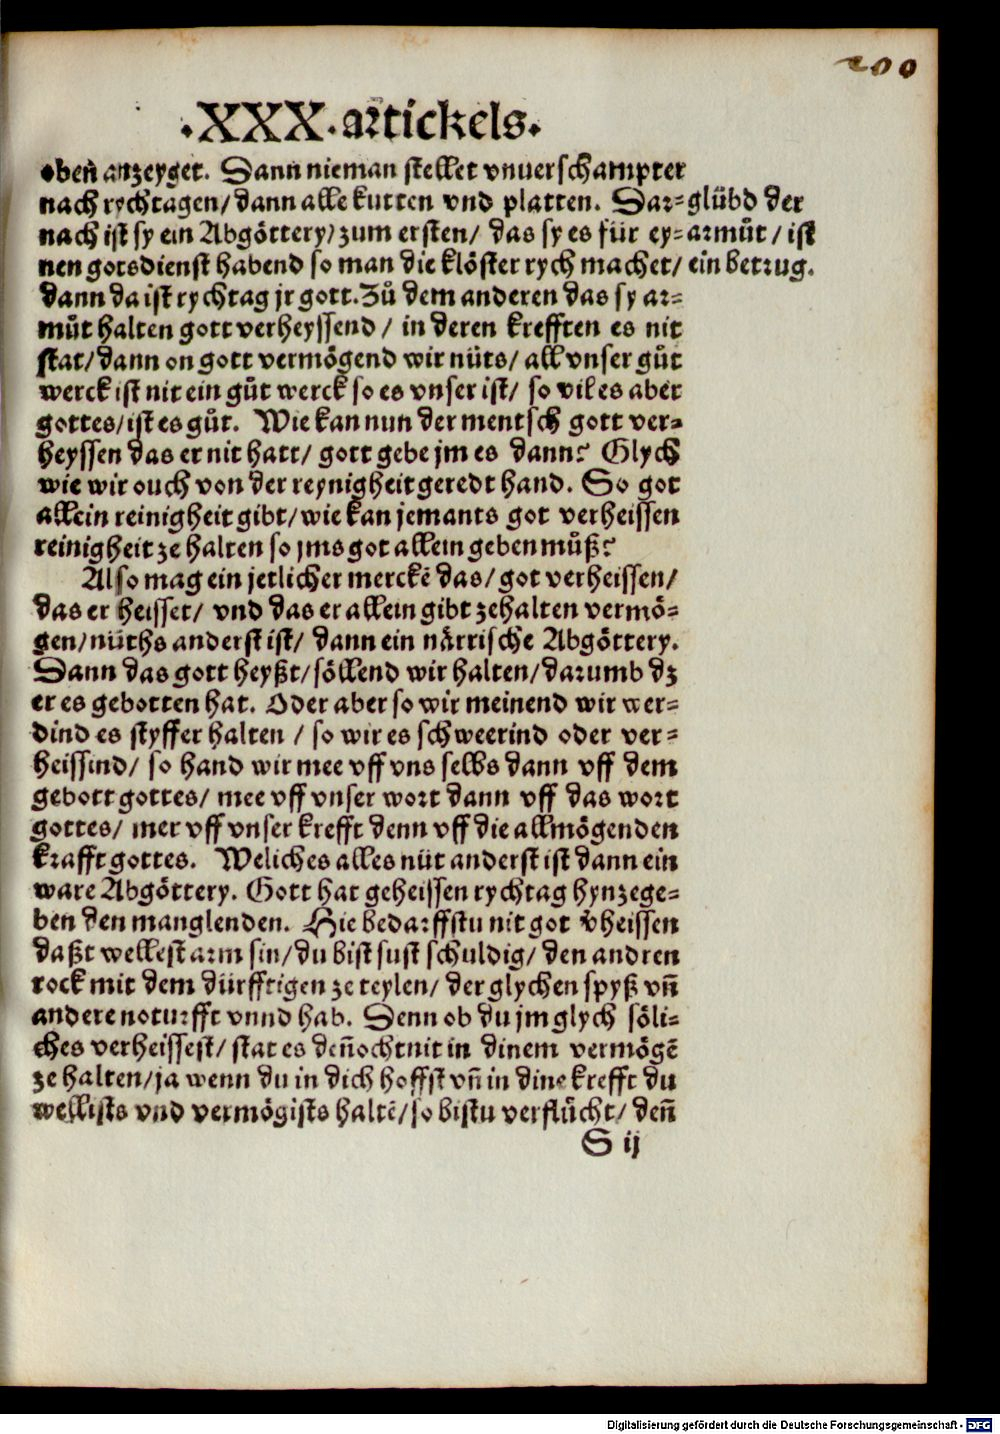 200
·XXX·artickels.
obeñ anzeyget. Dann nieman stellet vnuerschampter
nach rychtagen/ dann alle kutten vnd platten. Dar=
nach ist sy ein Abgöttery/ zum ersten/ das sy es für ey=
nen gotsdienst habend so man die klöster rych machet/
dann da ist rychtag jr gott. Zů dem anderen das sy ar=
můt halten gott verheyssend / in deren krefften es nit
stat/ dann on gott vermögend wir nüts/ all vnser gůt
werck ist nit ein gůt werck so es vnser ist/ so vil es aber
gottes/ ist es gůt. Wie kan nun der mentsch gott ver=
heyssen das er nit hatt/ gott gebe jm es dann? Glych
wie wir ouch von der reynigheit geredt hand. So got
allein reinigheit gibt/ wie kan jemants got verheissen
reinigheit ze halten so jms got allein geben můß?
Also mag ein jetlicher merckē das/ got verheissen/
das er heisset/ vnd das er allein gibt zehalten vermö=
gen/ nüths anderst ist/ dann ein närrische Abgöttery.
Dann das gott heyßt/ söllend wir halten/ darumb dz
er es gebotten hat. Oder aber so wir meinend wir wer=
dind es styffer halten / so wir es schweerind oder ver=
heissind/ so hand wir mee vff vns selbs dann vff dem
gebott gottes/ mee vff vnser wort dann vff das wort
gottes/ mer vff vnser krefft denn vff die allmögenden
krafft gottes. Weliches alles nüt anderst ist dann ein
ware Abgöttery. Gott hat geheissen rychtag hynzege=
ben den manglenden. Hie bedarffstu nit got v̄heissen
daßt wellest arm sin/ du bist sust schuldig/ den andren
rock mit dem dürfftigen ze teylen/ der glychen spyß vñ
andere noturfft vnnd hab. Denn ob du jm glych söli=
ches verheissest/ stat es deñocht nit in dinem vermögē
ze halten/ ja wenn du in dich hoffst vñ in dine krefft du
wellists vnd vermögists haltē/ so bistu verflůcht/ deñ
S ij
glübd der
armůt / ist
ein betrug.
Digitalisierung gefördert durch die Deutsche Forschungsgemeinschaft - DFG